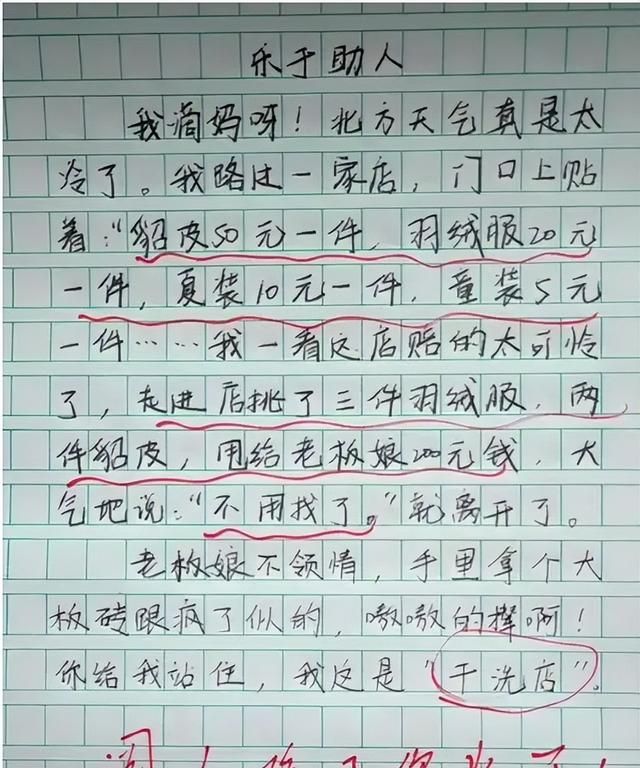 乐于助人
我滴妈呀！北方天气真是太
冷了。我路过一家店，门口上贴
着：“貂皮50元一件，羽绒服20元
一件，夏装10元一件，童装5元
一件……我一看这店赔的太可怜
了，走进店挑了三件羽绒服，两
件貂皮，甩给老板娘200元钱，大
气地说：“不用找了。”就离开了。
老板娘不领情，手里拿个大
板砖跟疯了似的，嗷嗷的撵啊！
你给我站住，我这是“干洗店”。